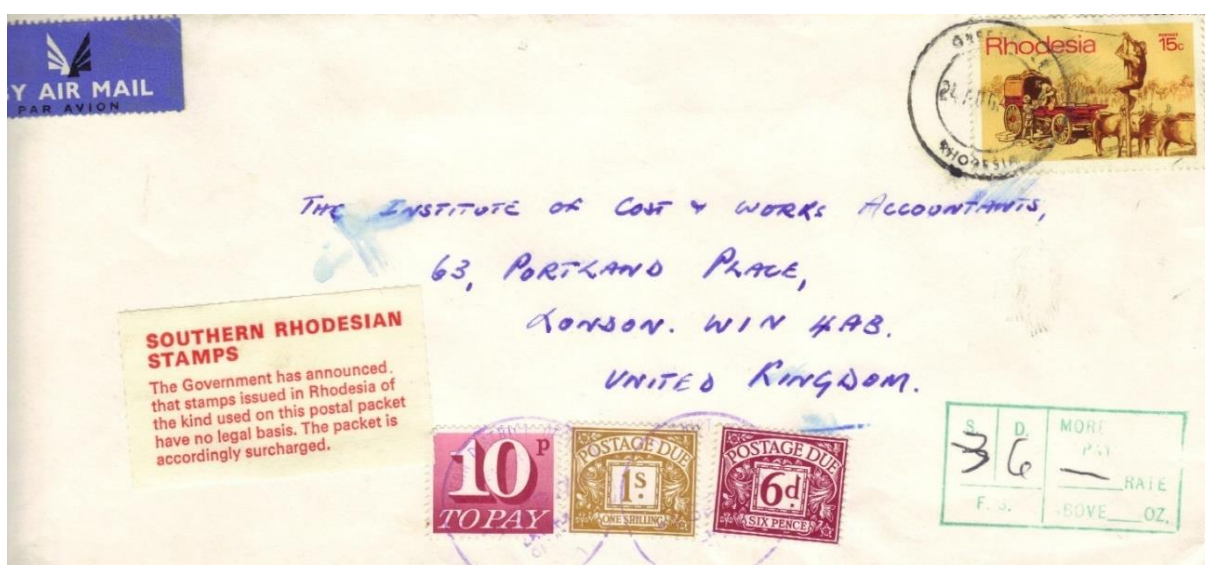 Y AIR MAIL
PAR AVION
Rhodesia
POSTAGE
15c
RHODESIA
The Institute of Cost & Works Accountants,
63, Portland Place,
London. W1N 4AB.
United Kingdom.
SOUTHERN RHODESIAN
STAMPS
The Government has announced.
that stamps issued in Rhodesia of
the kind used on this postal packet
have no legal basis. The packet is
accordingly surcharged.
10P
TO PAY
POSTAGE DUE
1s.
ONE SHILLING
POSTAGE DUE
6d.
SIX PENCE
S. D.
3 6
F. S.
MORE
PAY
RATE
ABOVE OZ.